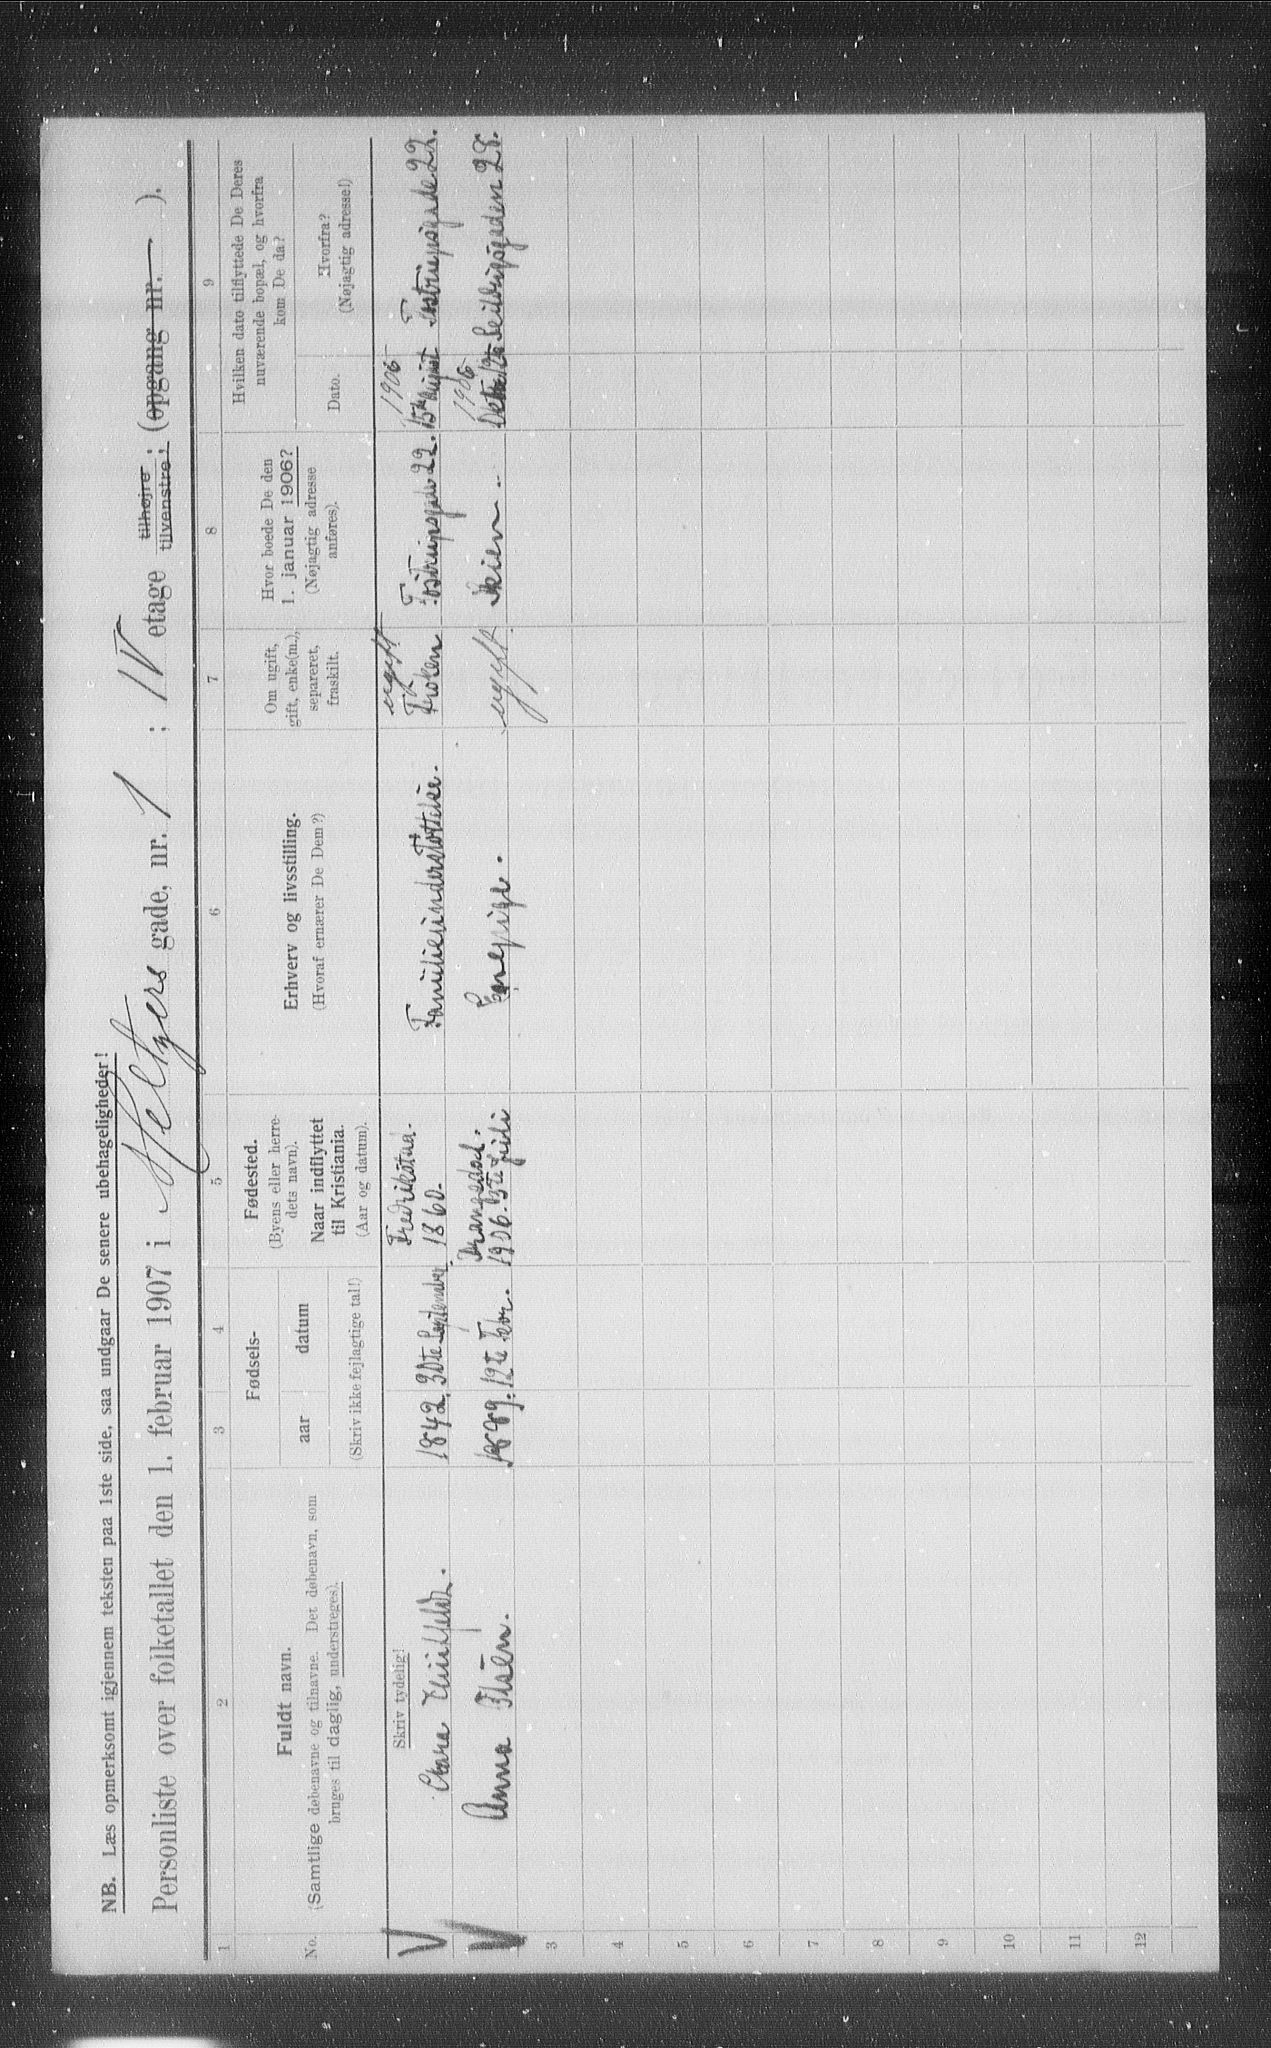 NB. Læs opmerksomt igjennem teksten paa 1ste side, saa undgaar De senere ubehageligheder!
Personliste over folketallet den 1. februar 1907 i Heltzers gade, nr. 1 ; IV etage tilhøjre tilvenstre ; (opgang nr. — ).
1 2 3 4 5 6 7 8 9
No.
Fuldt navn.
(Samtlige døbenavne og tilnavne. Det døbenavn, som
bruges til daglig, understreges).
Fødsels-
aar datum
(Skriv ikke fejlagtige tal!)
Fødested.
(Byens eller herre-
dets navn).
Naar indflyttet
til Kristiania.
(Aar og datum).
Erhverv og livsstilling.
(Hvoraf ernærer De Dem?)
Om ugift,
gift, enke(m.),
separeret,
fraskilt.
Hvor boede De den
1. januar 1906?
(Nøjagtig adresse
anføres).
Hvilken dato tilflyttede De Deres
nuværende bopæl, og hvorfra
kom De da?
Dato.
Hvorfra?
(Nøjagtig adresse!)
Skriv tydelig!
V Clara 1842. 30te September Fredrikstad. 1860. Familieunderstøttelse. ugift Frøken Tostrupsgade 22. 1906 Tostrupsgade 22.
V Anna Olsen. 1889. 12te Febr. Drangedal. 1906. Juli Enepige. ugift Skien. 1906 28.
3
4
5
6
7
8
9
10
11
12